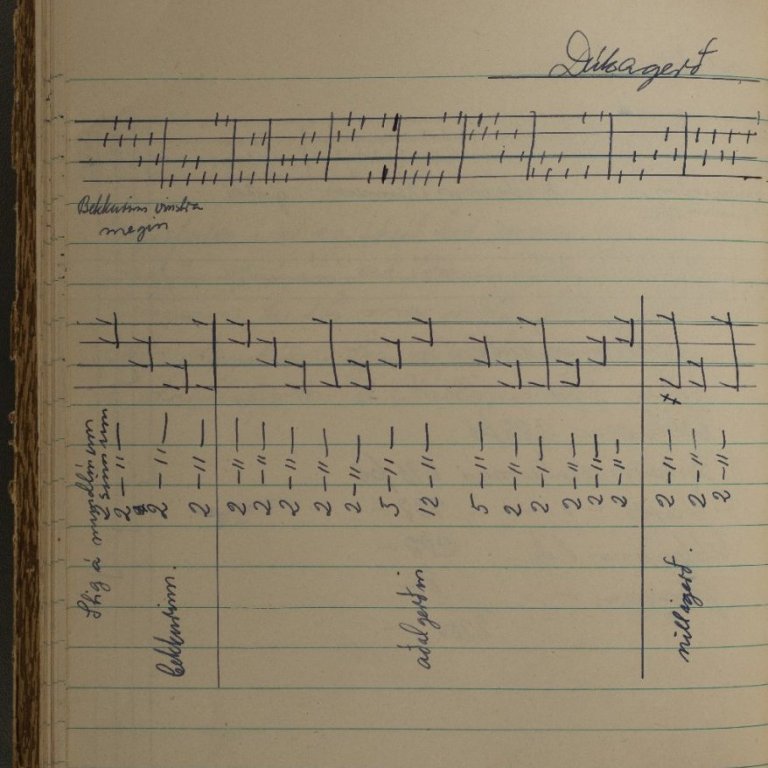 Dúkagerð
Bekkurinn vinstra
megin
Stig á myndlínum
2 sinnum
2 -"-
2 -"-
2 -"-
2 -"-
2 -"-
2 -"-
2 -"-
2 -"-
5 -"-
12 -"-
5 -"-
2 -"-
2 -"-
2 -"-
2 -"-
2 -"-
2 -"-
2 -"-
2 -"-
bekkurinn.
aðalgerðin
milligerð.